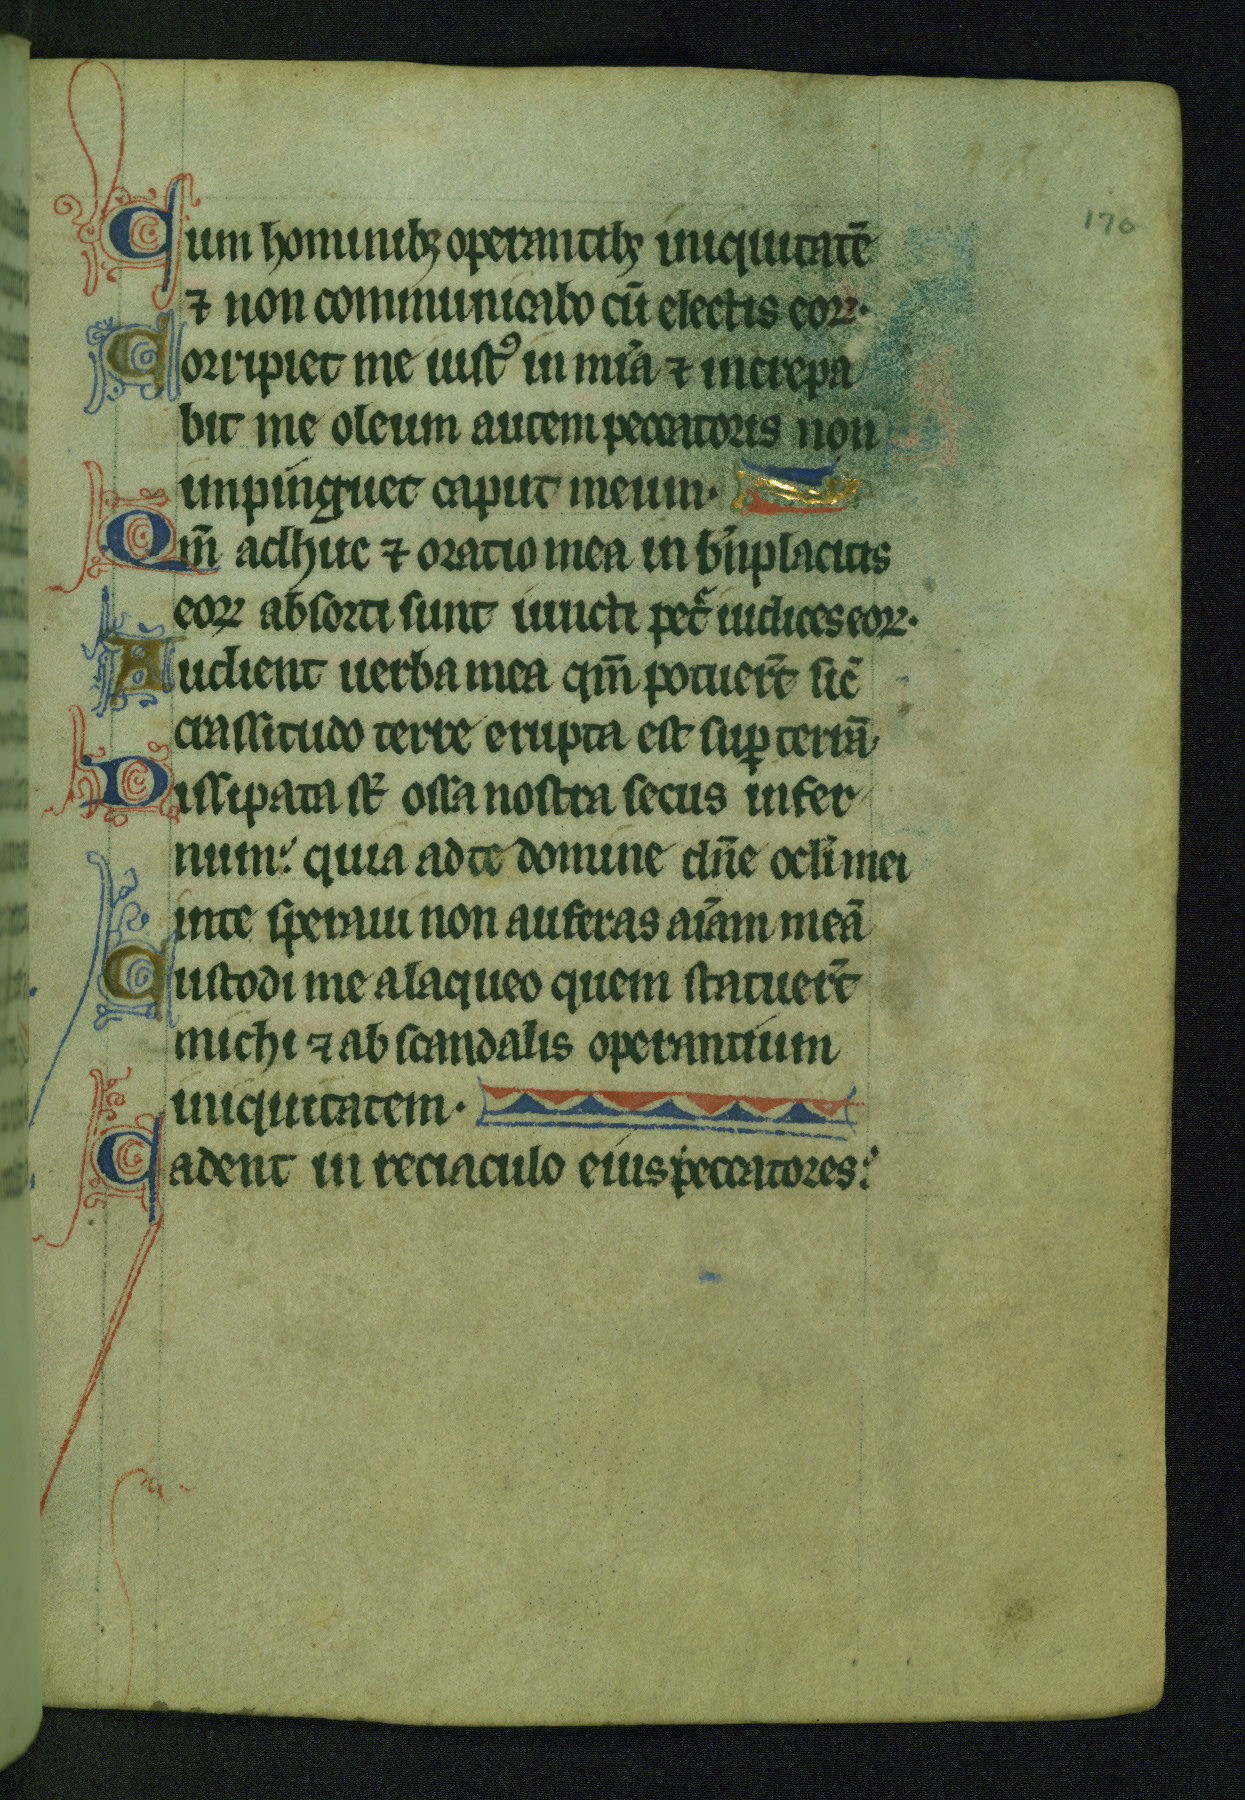 170
Cum hominibꝫ operantibꝫ iniquitatē
⁊ non communicabo cū electis eoꝝ·
Corripiet me iustꝰ in mīa ⁊ increpa
bit me oleum autem peccatoris non
impinguet caput meum·
Qm̄ adhuc ⁊ oratio mea in bn̄placitis
eoꝝ absorti sunt iuncti pet̄ iudices eoꝝ·
Audient uerba mea qm̄ potuert̄ sic̄
crassitudo terre erupta est suꝑ terrā·
Dissipata st̄ ossa nostra secus infer
num: quia ad te domine dn̄e ocl̄i mei
in te speraui non auferas aīam meā
Custodi me a laqueo quem statuert̄
michi ⁊ ab scandalis operantium
iniquitatem·
Cadent in reciaculo eius peccatores: